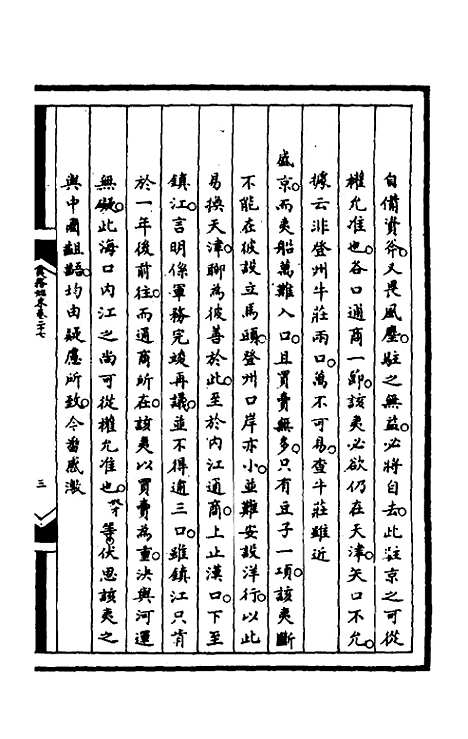 自備資斧又畏風塵駐之無益必將自去此駐京之可從
權允准也各口通商一節該夷必欲仍在天津矢口不允
據云非登州牛莊兩口萬不可易查牛莊雖近
盛京而夷船萬難入口且買賣無多只有豆子一項該夷斷
不能在彼設立馬頭登州口岸亦小並難安設洋行以此
易換天津聊為彼善於此至於內江通商上止漢口下至
鎮江言明俟軍務完竣再議並不得逾三口雖鎮江只肯
於一年後前往而通商所在該夷以買賣為重決與河運
無礙此海口內江之尚可從權允准也奴才等伏思該夷之
與中國齟齬均由疑慮所致今番感激
夷務始末卷二十七
三